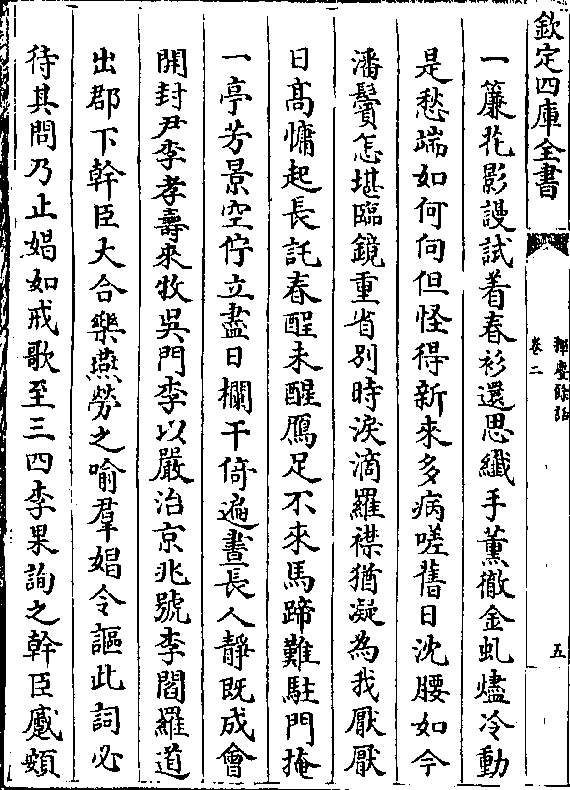 欽定四庫全書
揮麈餘話
卷二
五
一簾花影謾試着春衫還思纖手薰徹金虬燼冷動
是愁端如何向但怪得新來多病嗟舊日沈腰如今
潘鬢怎堪臨鏡重省別時淚滴羅襟猶凝為我厭厭
日髙慵起長託春酲未醒鴈足不來馬蹄難駐門掩
一亭芳景空佇立盡日欄干倚遍晝長人靜既成會
開封尹李孝壽來牧吳門李以嚴治京兆號李閻羅道
出郡下幹臣大合樂燕勞之喻羣娼令謳此詞必
待其問乃止娼如戒歌至三四李果詢之幹臣蹙頞